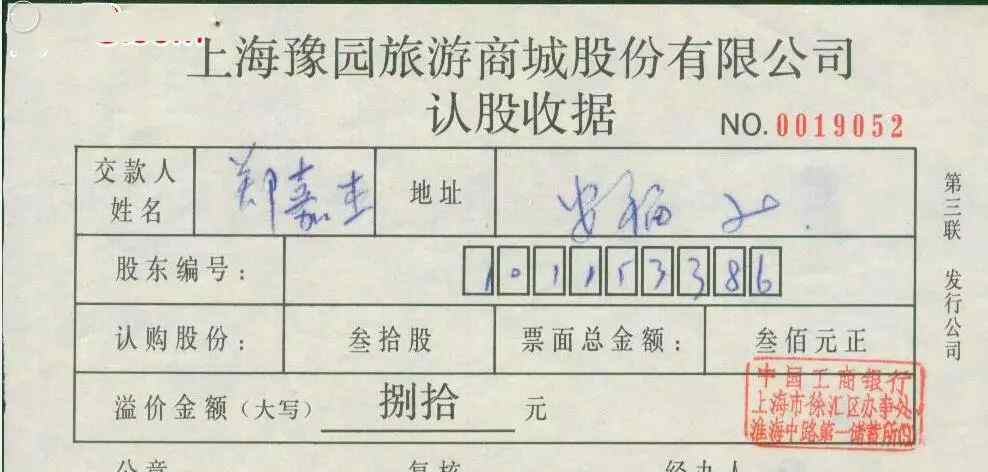 上海豫园旅游商城股份有限公司
认股收据
NO. 0019052
交款人姓名 郑嘉圭 地址 安福
股东编号： 1011153386
认购股份： 叁拾股 票面总金额： 叁佰元正
溢价金额（大写） 捌拾 元
中国工商银行
上海市徐汇区办事处
淮海中路第一储蓄所
公章 复核 经办人
第三联 发行公司